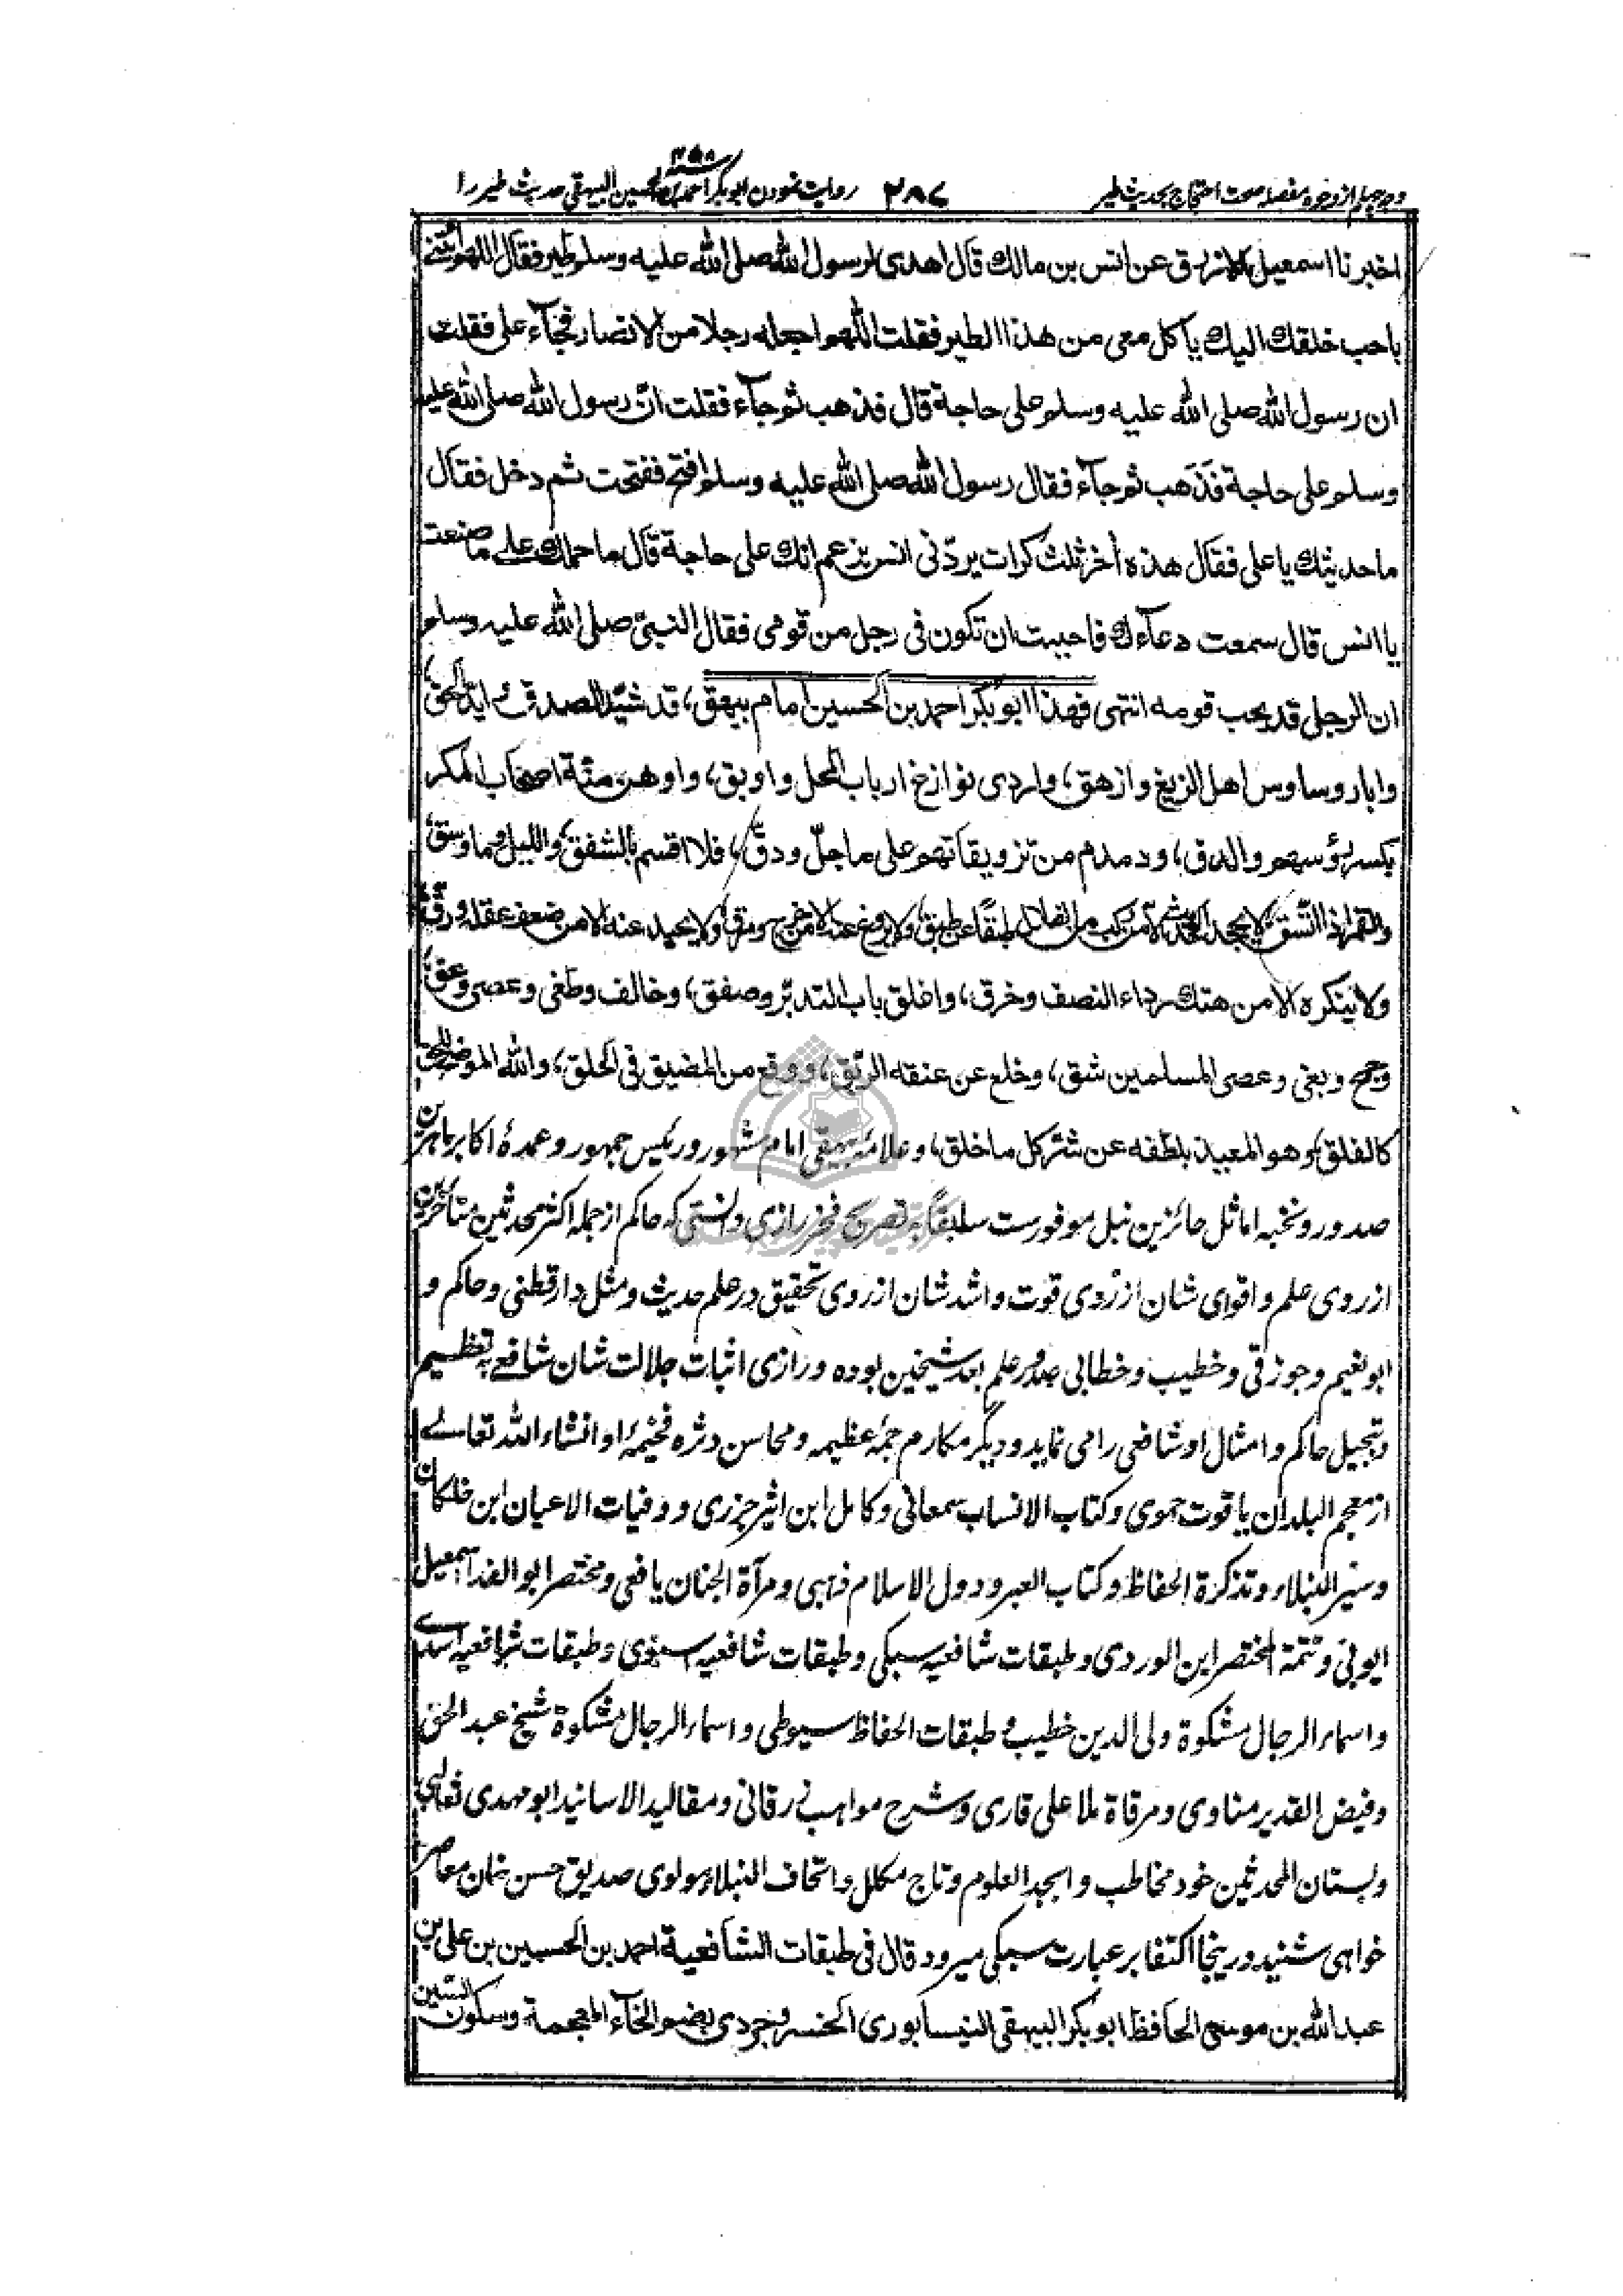 وجه چهارم از وجوه مفصله صحت احتجاج بحديث طير
٢٨٧
روايت نمودن ابو بكر احمد بن الحسين البيهقي حديث طير را
اخبرنا اسمعيل الازرق عن انس بن مالك قال اهدى لرسول الله صلى الله عليه وسلم طير فقال اللهم ائتنى
باحب خلقك اليك ياكل معى من هذا الطير فقلت اللهم اجعله رجلا من الانصار فجآء على فقلت
ان رسول الله صلى الله عليه وسلم على حاجة قال فذهب ثم جآء فقلت ان رسول الله صلى الله عليه
وسلم على حاجة فذهب ثم جآء فقال رسول الله صلى الله عليه وسلم افتح ففتحت ثم دخل فقال
ما حديثك يا على فقال هذه اخر ثلث كرات يردّنى انس يزعم انك على حاجة قال ما حملك على ما صنعت
يا انس قال سمعت دعآءك فاحببت ان تكون فى رجل من قومى فقال النبىّ صلى الله عليه وسلم
ان الرجل قد يحب قومه انتهى فهذا ابو بكر احمد بن الحسين امام بيهق، قد شيّد الصدق و ايّد الحق،
وابار وساوس اهل الزيغ وازهق، واردى نوازغ ارباب المحل واوبق، واوهن منّة اصحاب المكر
بكسر رؤسهم والدق، ودمدم من تزويقاتهم على ما جلّ ودقّ، فلا اقسم بالشفق، والليل وما وسق،
والقمر اذا اتّسق، لا يجحد الا من ركب من الضلال طبقًا عن طبق، ولا يروغ عنه الا من خرج ومرق، ولا يحيد عنه الا من ضعف عقله ورقّ،
ولا ينكره الا من هتك رداء النصف وخرق، واغلق باب التدبّر وصفق، وخالف وطغى وعصى وعق،
وجمح وبغى وعصى المسلمين شق، وخلع عن عنقه الربق، ووقع من المضيق فى الحلق، والله الموضح للحق
كالفلق، وهو المعيذ بلطفه عن شر كل ما خلق، و علامه بيهقى امام مشهور و رئيس جمهور و عمدهٔ اكابر ماهرين
صدور و نخبه اماثل حائزين نبل موفورست سابقًا به تصريح فخر رازى دانستى كه حاكم از جمله اكثر محدثين متاخرين
از روى علم و اقواى شان از روى قوت و اشد شان از روى تحقيق در علم حديث و مثل دارقطنى و حاكم و
ابو نعيم و جوزقى و خطيب و خطابى صدور علم بعد شيخين بوده و رازى اثبات جلالت شان شافعى به تعظيم
و تبجيل حاكم و امثال او شافعى را مى نمايد و ديگر مكارم جمهٔ عظيمه و محاسن دثره فخيمهٔ او انشاء الله تعالى
از معجم البلدان ياقوت حموى و كتاب الانساب سمعانى و كامل ابن اثير جزرى و وفيات الاعيان ابن خلكان
و سير النبلاء و تذكرة الحفاظ و كتاب العبر و دول الاسلام ذهبى و مرآة الجنان يافعى و مختصر ابو الفدا اسمعيل
ايوبى و تتمة المختصر ابن الوردى و طبقات شافعيه سبكى و طبقات شافعيه اسنوى و طبقات شافعيه اسدى
و اسماء الرجال مشكوة ولى الدين خطيب و طبقات الحفاظ سيوطى و اسماء الرجال مشكوة شيخ عبد الحق
و فيض القدير مناوى و مرقاة ملا على قارى و شرح مواهب زرقانى و مقاليد الاسانيد ابو مهدى ثعالبى
و بستان المحدثين خود مخاطب و ابجد العلوم و تاج مكلل و اتحاف النبلاء مولوى صديق حسن خان معاصر
خواهى شنيد و رينجا اكتفا بر عبارت سبكى ميرود قال فى طبقات الشافعية احمد بن الحسين بن على بن
عبد الله بن موسى الحافظ ابو بكر البيهقى النيسابورى الخسروجردى بضم الخآء المعجمة وسكون السّين